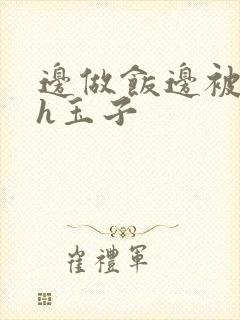 邊做飯邊被
h玉子
崔禮軍